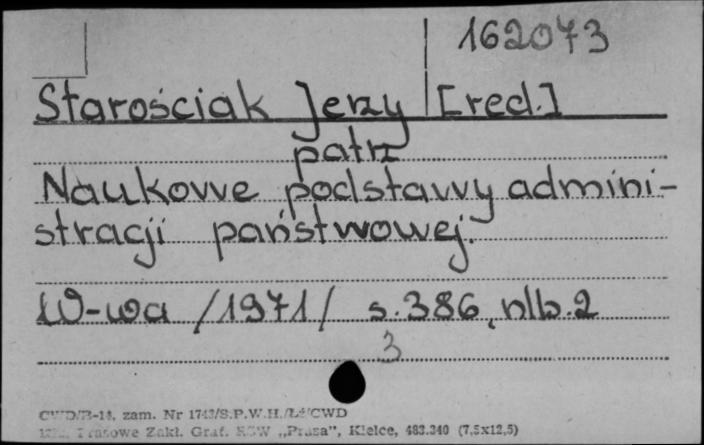 162073
Starościak Jerzy [red.]
patrz
Naukowe podstawy admini-
stracji państwowej.
W-wa /1971/ s. 386, nlb. 2
3
CWD/B-14, zam. Nr 1743/S.P.W.H./Ł/CWD
Prasowe Zakł. Graf. RSW „Prasa", Kielce, 483.340 (7,5x12,5)